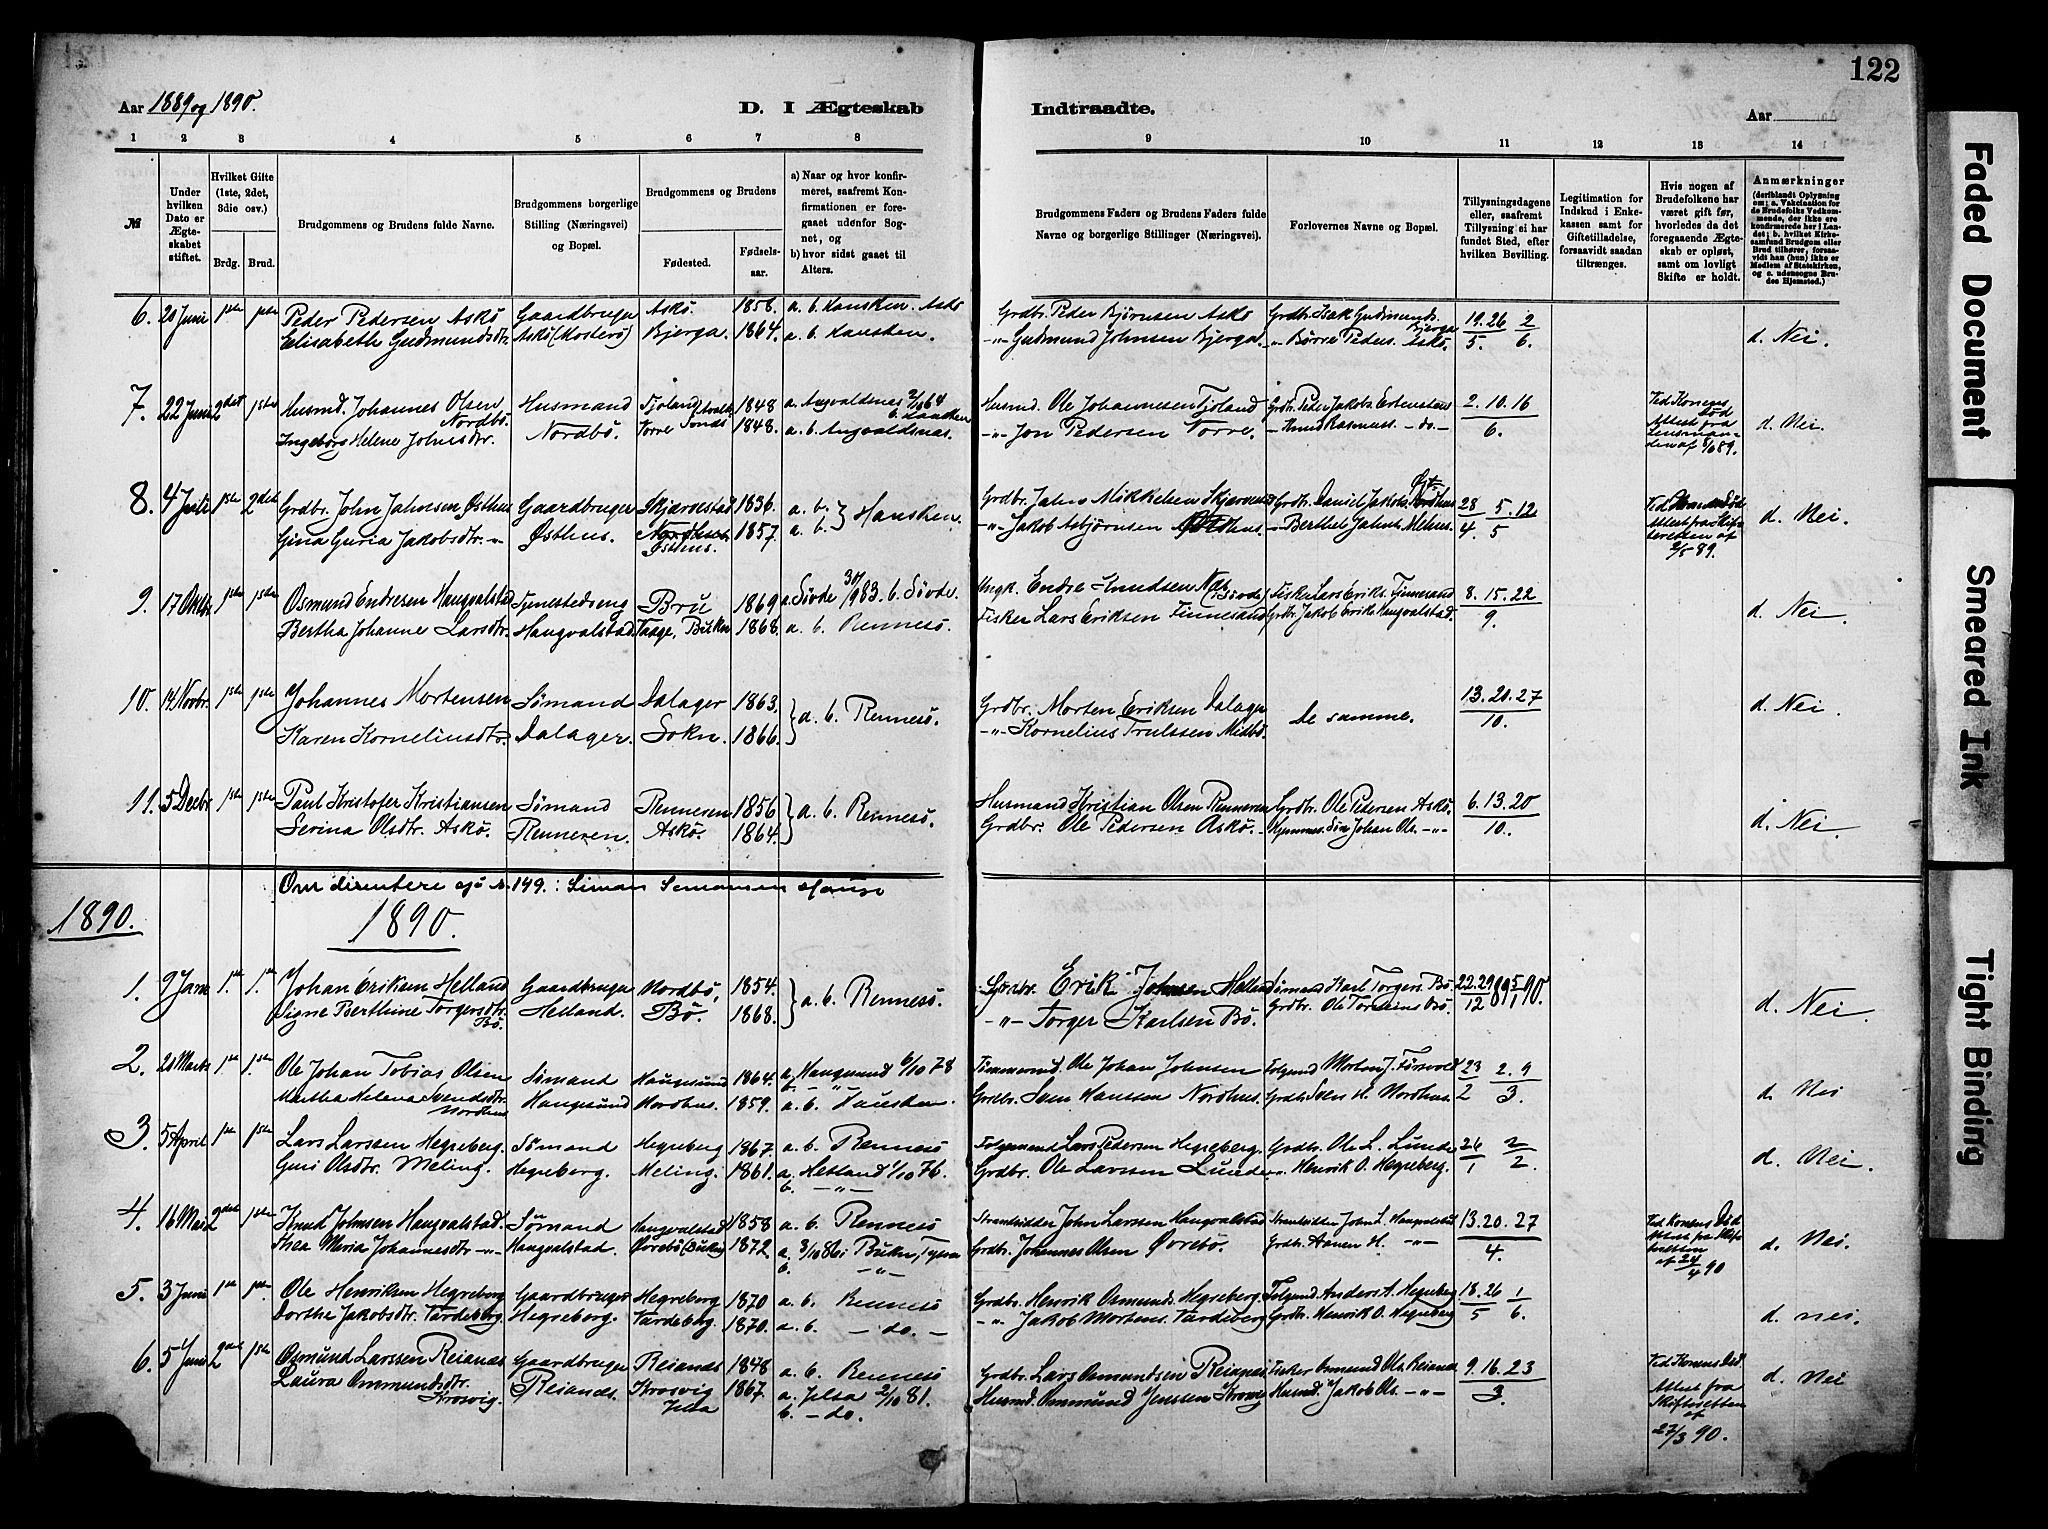 122
Aar 1889 og 1890.
D. I Ægteskab
Indtraadte.
Aar
1 2 3 4 5 6 7 8 9 10 11 12 13 14
№
Under hvilken Dato er Ægteskabet stiftet.
Hvilket Gifte (1ste, 2det, 3die osv.)
Brdg. Brud.
Brudgommens og Brudens fulde Navne.
Brudgommens borgerlige Stilling (Næringsvei) og Bopæl.
Brudgommens og Brudens
Fødested.
Fødselsaar.
a) Naar og hvor konfirmeret, saafremt Konfirmationen er foregaaet udenfor Sognet, og
b) hvor sidst gaaet til Alters.
Brudgommens Faders og Brudens Faders fulde Navne og borgerlige Stillinger (Næringsvei).
Forlovernes Navne og Bopæl.
Tillysningsdagene eller, saafremt Tillysning ei har fundet Sted, efter hvilken Bevilling.
Legitimation for Indskud i Enkekassen samt for Giftetilladelse, forsaavidt saadan tiltrænges.
Hvis nogen af Brudefolkene har været gift før, hvorledes da det foregaaende Ægteskab er opløst, samt om lovligt Skifte er holdt.
Anmærkninger (deriblandt Oplysning om: a. Vakcination for de Brudefolks Vedkommende, der ikke ere konfirmerede her i Landet; b. hvilket Kirkesamfund Brudgom eller Brud tilhører, forsaavidt han (hun) ikke er Medlem af Statskirken, og c. udensogns Brudes Hjemsted.)
6. 20 Juni 1ste 1ste Peder Pedersen Askö Gaardbruger Askö. 1858. a. b. Hausken. Askö Grdbr. Peder Bjørnsen Askö Grdbr. Isak Gudmunds. Bjerga 19. 26 2
Elisabeth Gudmundsdtr. Askö (Mosterö) Bjerga. 1864. a. b. Hausken. -"- Gudmund Johnsen Bjerga. -"- Børre Peders. Askö. 5. 6. d. Nei.
7. 22 Juni 2det 1ste Husmd. Johannes Olsen Nordbö. Husmand Tjoland 1848 a. Augvaldsnæs 2/10 64 b. Hausken Husmd. Ole Johannesen Tjoland Grdbr. Peder Jakobs. 2. 10. 16 Ved Konens Død
Ingeborg Helene Johnsdtr. Nordbö. Norre 1848. a. b. Augvaldsnæs. -"- Jon Pedersen Norre. - Knud Rasmuss. - do - 6. Attest fra Lensmanden af 8/6 89. d. Nei.
8. 4 Juli 1ste 2det Grdbr. John Johnsen Østhus Gaardbruger Skjørvestad 1836. a. b. } Hausken. Grdbr. John Mikkelsen Grdbr. Daniel Jakobs. Østhus 28 5. 12
Gina Guria Jakobsdtr. -"- Østhus. Østhus. 1857. a. b. -"- Jakob Asbjørnsen Østhus. - Berthel Johns. Mehus. 4. 5 Attest fra Skifteretten af 2/5 89. d. Nei.
9. 17 Oktb. 1ste 1ste Osmund Endresen Haugvalstad Tjenestedreng Bru 1869 a. Søvde 30/9 83. b. Søvde. Ungk. Endre Knudsen Fisker Lars Eriks. Finnesand 8. 15. 22
Bertha Johanne Larsdtr. Haugvalstad. Vaage, Bukn 1868. a. b. Rennesö. Fisker Lars Eriksen Finnesand Grdbr. Jakob Eriks. Haugvalstad. 9. d. Nei.
10. 14 Novbr. 1ste 1ste Johannes Mortensen Sømand Dalager 1863. } a. b. Rennesö. Grdbr. Morten Eriksen Dalager De samme. 13. 20. 27
Karen Korneliusdtr. Dalager. Sokn. 1866. -"- Kornelius Trulssen Midbö. 10. d. Nei.
11. 5 Decbr. 1ste 1ste Paul Kristofer Kristiansen Sømand Renneren 1856 } a. b. Rennesö. Husmand Kristian Olsen Renneren Grdbr. Ole Pedersen Askö. 6. 13. 20
Serina Olsdtr. Askö. Renneren. Askö. 1864. Grdbr. Ole Pedersen Askö. Johan Ols. -"- 10. d. Nei.
149. : Siman Semonsen
1890. 1890.
1. 9 Jan 1ste 1ste Johan Eriksen Helland Gaardbruger Nordbö, 1854. } a. b. Rennesö. Grdbr. Erik Johnsen Helland Sømand Karl Torgers. Bö. 22. 29 89, 5/1 90.
Signe Berthine Torgersdtr. Bö. Helland. Bö. 1868. -"- Torger Karlsen Bö. Grdbr. Ole Torsteins. Bö. 12 d. Nei.
2. 20 Marts 1ste 1ste Ole Johan Tobias Olsen Sømand Haugesund 1864. a. Haugesund 6/10 78 b. -"- Tømmermd. Ole Johan Johnsen Folgemd Morten J. Førsvold 23 2. 9
Martha Helena Svendsdtr. Nordhus Haugesund Nordhus. 1859. a. b. Hausken. Grdbr. Sven Hanssen Nordhus. Grdbr. Sven H. Nordhus. 2 3. d. Nei
3. 5 April 1ste 1ste Lars Larssen Hegreberg. Sömand Hegreberg 1867. a. b. Rennesö Folgemand Lars Pedersen Hegreberg. Grdbr. Ole L. Lunde 26 2
Guri Olsdtr. Meling. Hegreberg. Meling. 1861. a. Hetland 1/10 76. b. -"- Grdbr. Ole Larssen Lunde -"- Henrik O. Hegreberg. 1 2. d. Nei.
4. 16 Mai 2det 1ste Knud Johnsen Haugvalstad. Sømand Haugvalstad 1858 a. b. Rennesö Strandsidder John Larssen Haugvalstad Strandsidder John L. Haugvalstad 13. 20. 27 Ved Konens Død
Thea Maria Johannesdtr -"- Haugvalstad. Ørebö (Bukn) 1872. a. 3/10 86 i Bukn, Tysvær b. -"- Grdbr. Johannes Olsen Ørebö. Grdbr. Aanen H. -"- 4. Attest fra Skifteretten af 24/4 90 d. Nei.
5. 3 Juni 1ste 1ste Ole Henriksen Hegreberg Gaardbruger Hegreberg 1870 a. b. Rennesö Grdbr. Henrik Osmunds. Hegreberg. Folgemd. Anders A. Hegreberg 18. 26 1
Dorthe Jakobsdtr. Vardeberg. Hegreberg. Vardeberg. 1870. a. b. - do. - -"- Jakob Mortens. Vardeberg Grdbr. Henrik O. Hegreberg 5 6. d. nei.
6. 5 Juni 2det 1ste Osmund Larssen Reianes Gaardbruger Reianes 1848 a. b. Rennesö Grdbr. Lars Osmundsen Reianes Fisker Osmund Ols. Reianes 9. 16. 23 Ved Konens Død.
Laura Ommundsdtr. Krosvig. Reianes. Krosvig Jelsa 1867. a. Jelsa 2/10 81. b. - do. Husmd. Ommund Jenssen Krosvig Husmd. Jakob Ols. -"- 3. Attest fra Skifteretten af 27/3 90. d. Nei
Faded Document
Smeared Ink
Tight Binding